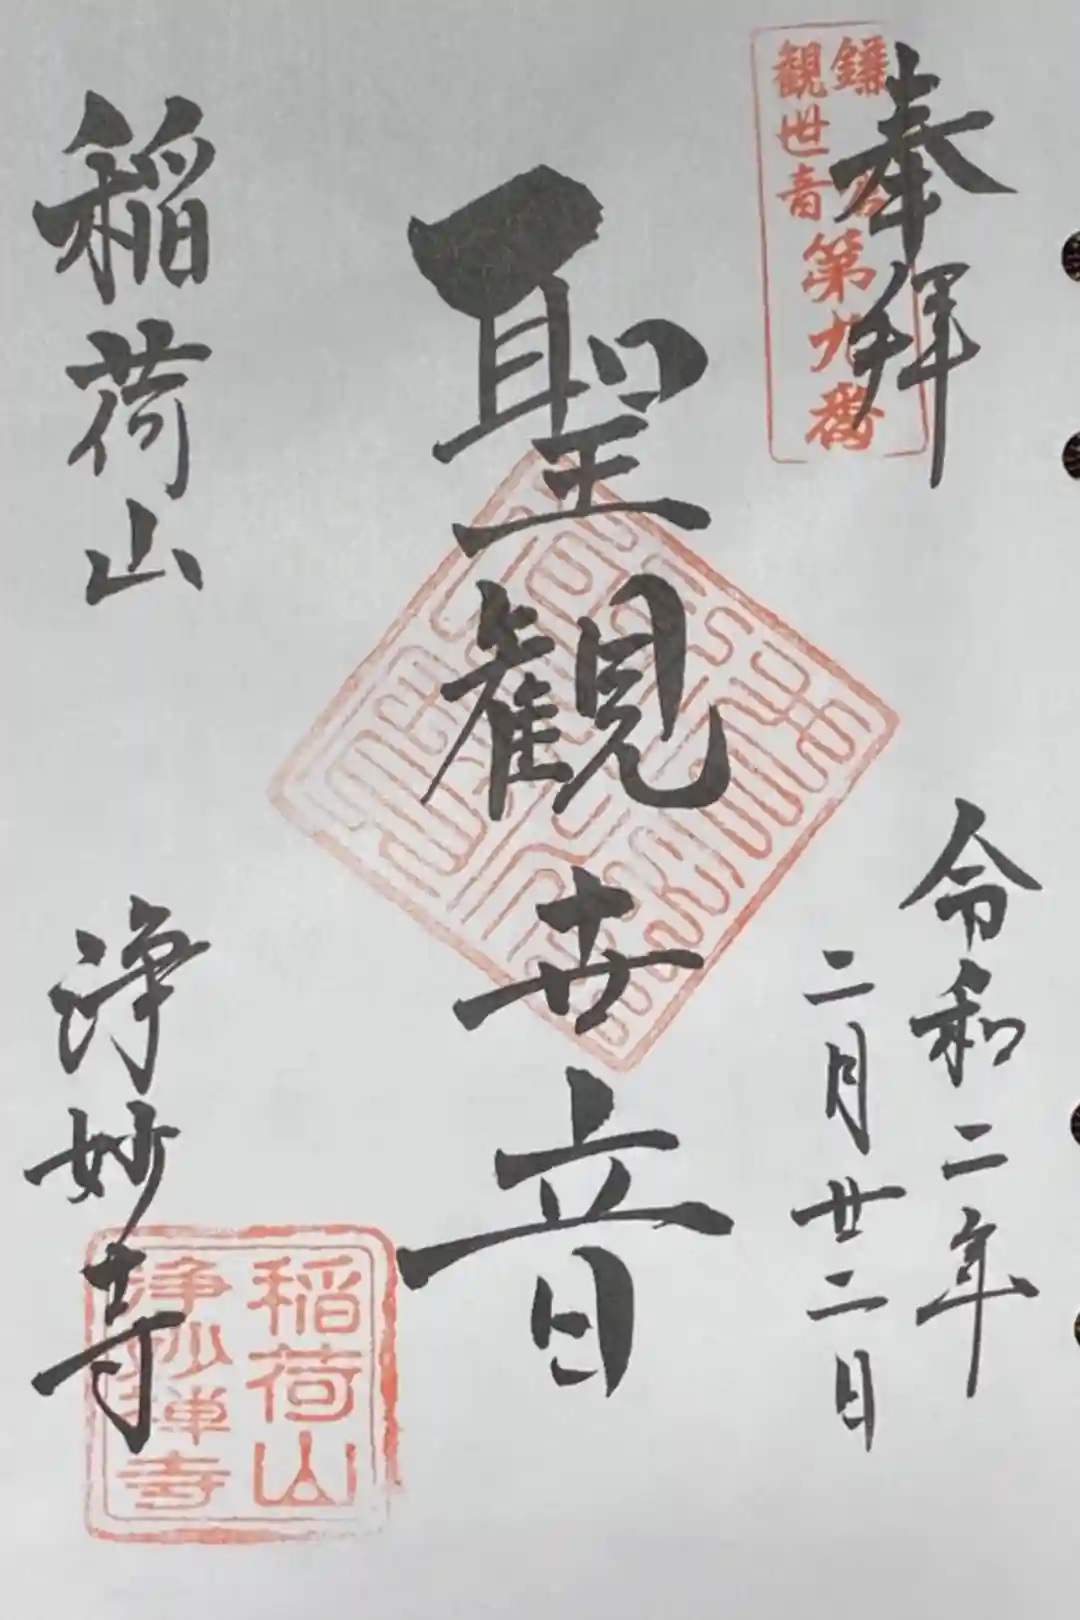 奉拝
鎌倉
観世音
第九番
令和二年
二月廿二日
聖観世音
稲荷山
浄妙寺
稲荷山
浄妙禅寺